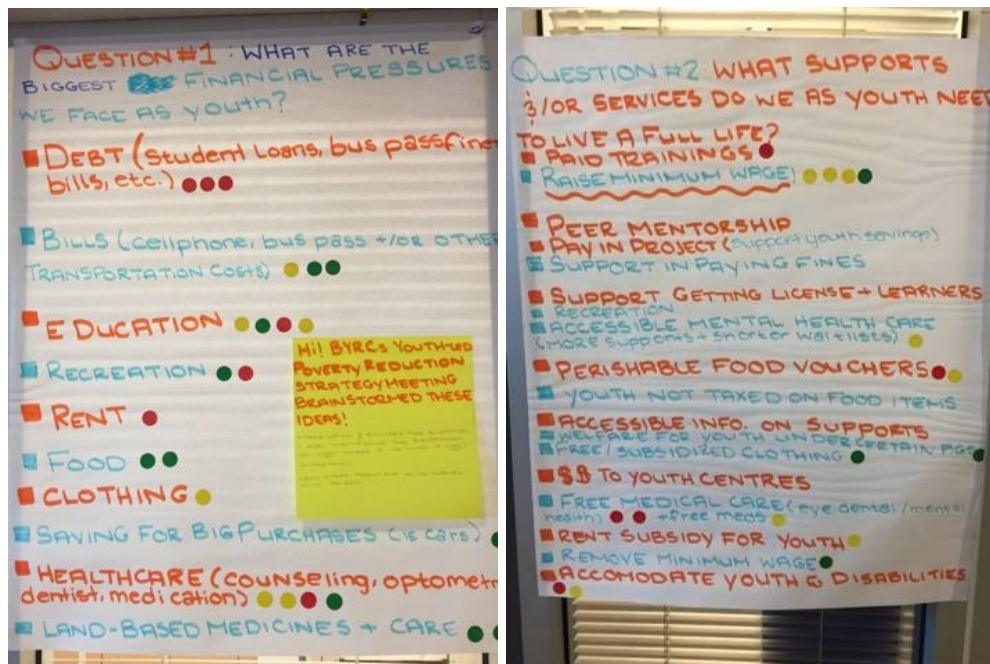 QUESTION #1 : WHAT ARE THE
BIGGEST FINANCIAL PRESSURES
WE FACE AS YOUTH?
DEBT (Student Loans, bus pass fine
bills, etc.)
BILLS (cellphone, bus pass +/OR OTHER
TRANSPORTATION COSTS)
EDUCATION
RECREATION
RENT
FOOD
CLOTHING
SAVING FOR BIG PURCHASES (IE CARS)
HEALTHCARE (counseling, optometr
dentist, medication)
LAND-BASED MEDICINES + CARE
Hi! BYRCs YOUTH-LED
POVERTY REDUCTION
STRATEGY MEETING
BRAINSTORMED THESE
IDEAS!
QUESTION #2 WHAT SUPPORTS
&/OR SERVICES DO WE AS YOUTH NEED
TO LIVE A FULL LIFE?
PAID TRAININGS
RAISE MINIMUM WAGE!
PEER MENTORSHIP
PAY IN PROJECT (support youth savings)
SUPPORT IN PAYING FINES
SUPPORT GETTING LICENSE + LEARNERS
RECREATION
ACCESSIBLE MENTAL HEALTH CARE
(MORE supports + shorter waitlists)
PERISHABLE FOOD VOUCHERS
YOUTH NOT TAXED ON FOOD ITEMS
ACCESSIBLE INFO. ON SUPPORTS
WELFARE FOR YOUTH UNDER CERTAIN AGE
FREE/SUBSIDIZED CLOTHING
$$ TO YOUTH CENTRES
FREE MEDICAL CARE (eye dental/mental
health) + free meds
RENT SUBSIDY FOR YOUTH
REMOVE MINIMUM WAGE
ACCOMODATE YOUTH & DISABILITIES